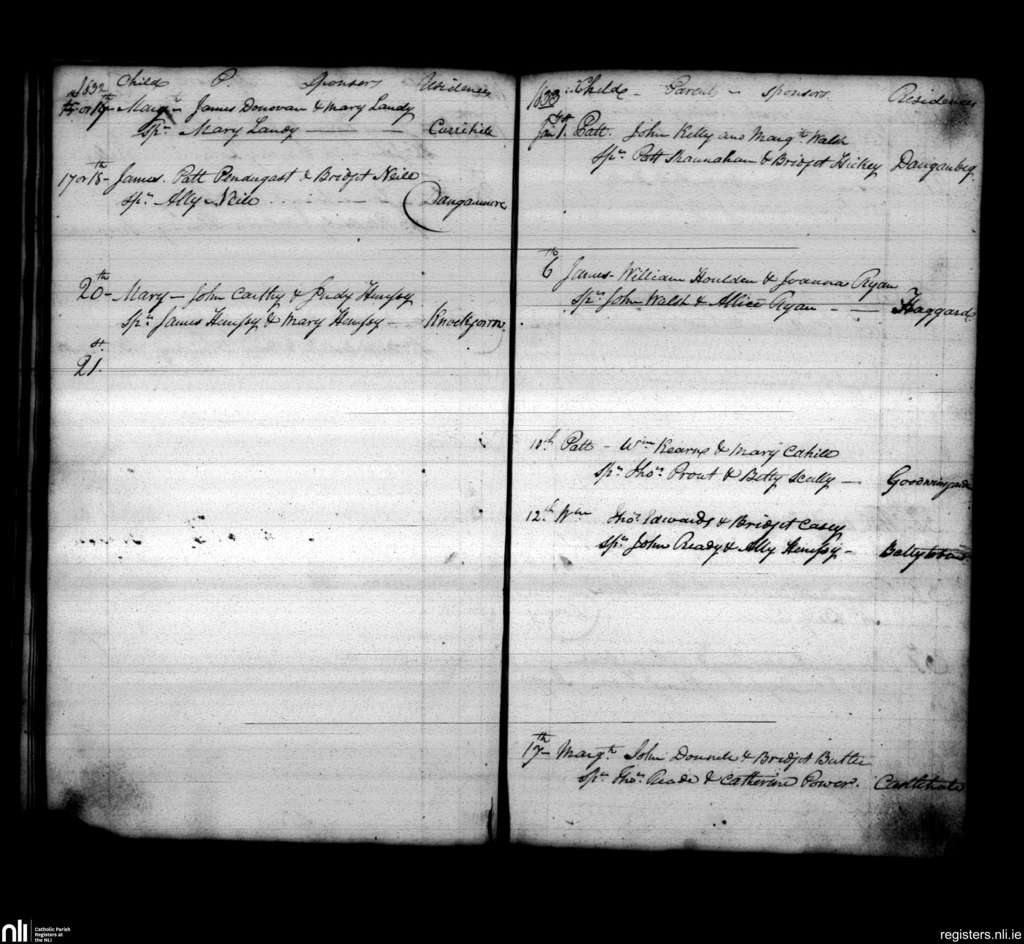 1832 Child P. Sponsors Residences
or 19th Margt James Donovan & Mary Landy
Spr Mary Landy Currihile
17 or 18th James. Patt Pendergast & Bridget Neile
Spr Ally Neile Danganmore
20th Mary John Carthy & Judy Hensy
Spr James Hensy & Mary Hensy
21st
1833 Child Parents Sponsors Residences
Jan 1st Patt. John Kelly and Margt Walsh
Spr Patt Shaunahan & Bridget Hickey Danganbeg
6th James William Houlden & Joanna Ryan
Spr John Walsh & Allice Ryan Haggard
10th Patt Wm Kearns & Mary Cahill
Spr Thos Prout & Betty Scully
12th Wm Thos Edwards & Bridget Casey
Spr John Ready & Ally Hensy
17th Margt John Donnele & Bridget Butler
Spr Thos Reade & Catherine Power.
nli Catholic Parish
Registers at
the NLI
registers.nli.ie